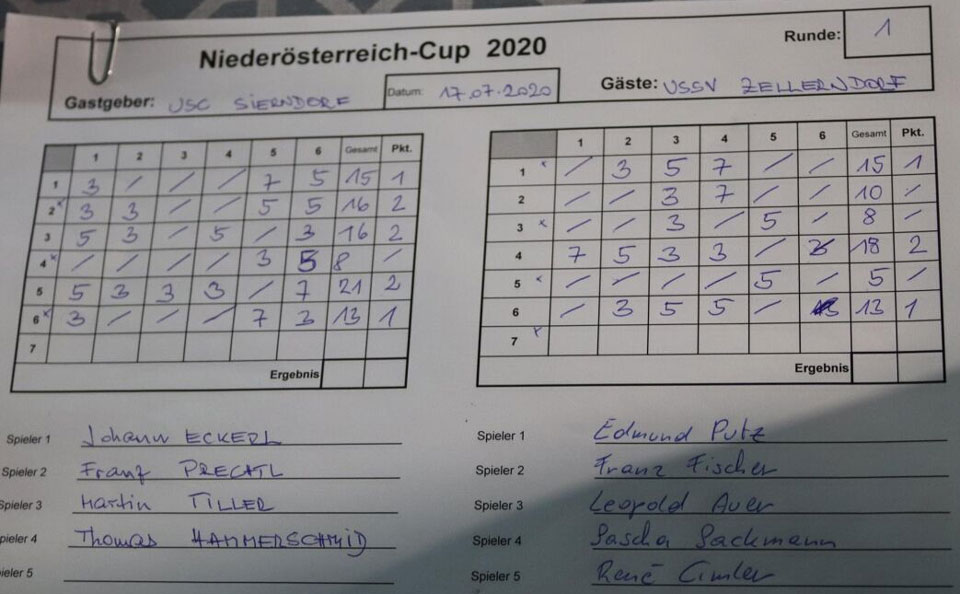 Niederösterreich-Cup 2020
Runde: 1
Gastgeber: USC SIERNDORF
Datum: 17.07.2020
Gäste: USSV ZELLERNDORF
1 2 3 4 5 6 Gesamt Pkt.
1 3 / / / 7 5 15 1
2 x 3 3 / / 5 5 16 2
3 5 3 / 5 / 3 16 2
4 x / / / / 3 5 8 /
5 5 3 3 3 / 7 21 2
6 x 3 / / / 7 3 13 1
7
Ergebnis
1 2 3 4 5 6 Gesamt Pkt.
1 x / 3 5 7 / / 15 1
2 / / 3 7 / / 10 /
3 x / / 3 / 5 / 8 /
4 7 5 3 3 / 18 2
5 x / / / / 5 / 5 /
6 / 3 5 5 / 13 1
7 x
Ergebnis
Spieler 1 Johann ECKERL
Spieler 2 Franz PRECHTL
Spieler 3 Martin TILLER
pieler 4 Thomas HAMMERSCHMID
ieler 5
Spieler 1 Edmund Putz
Spieler 2 Franz Fischer
Spieler 3 Leopold Auer
Spieler 4 Sascha Sackmann
Spieler 5 René Cimler